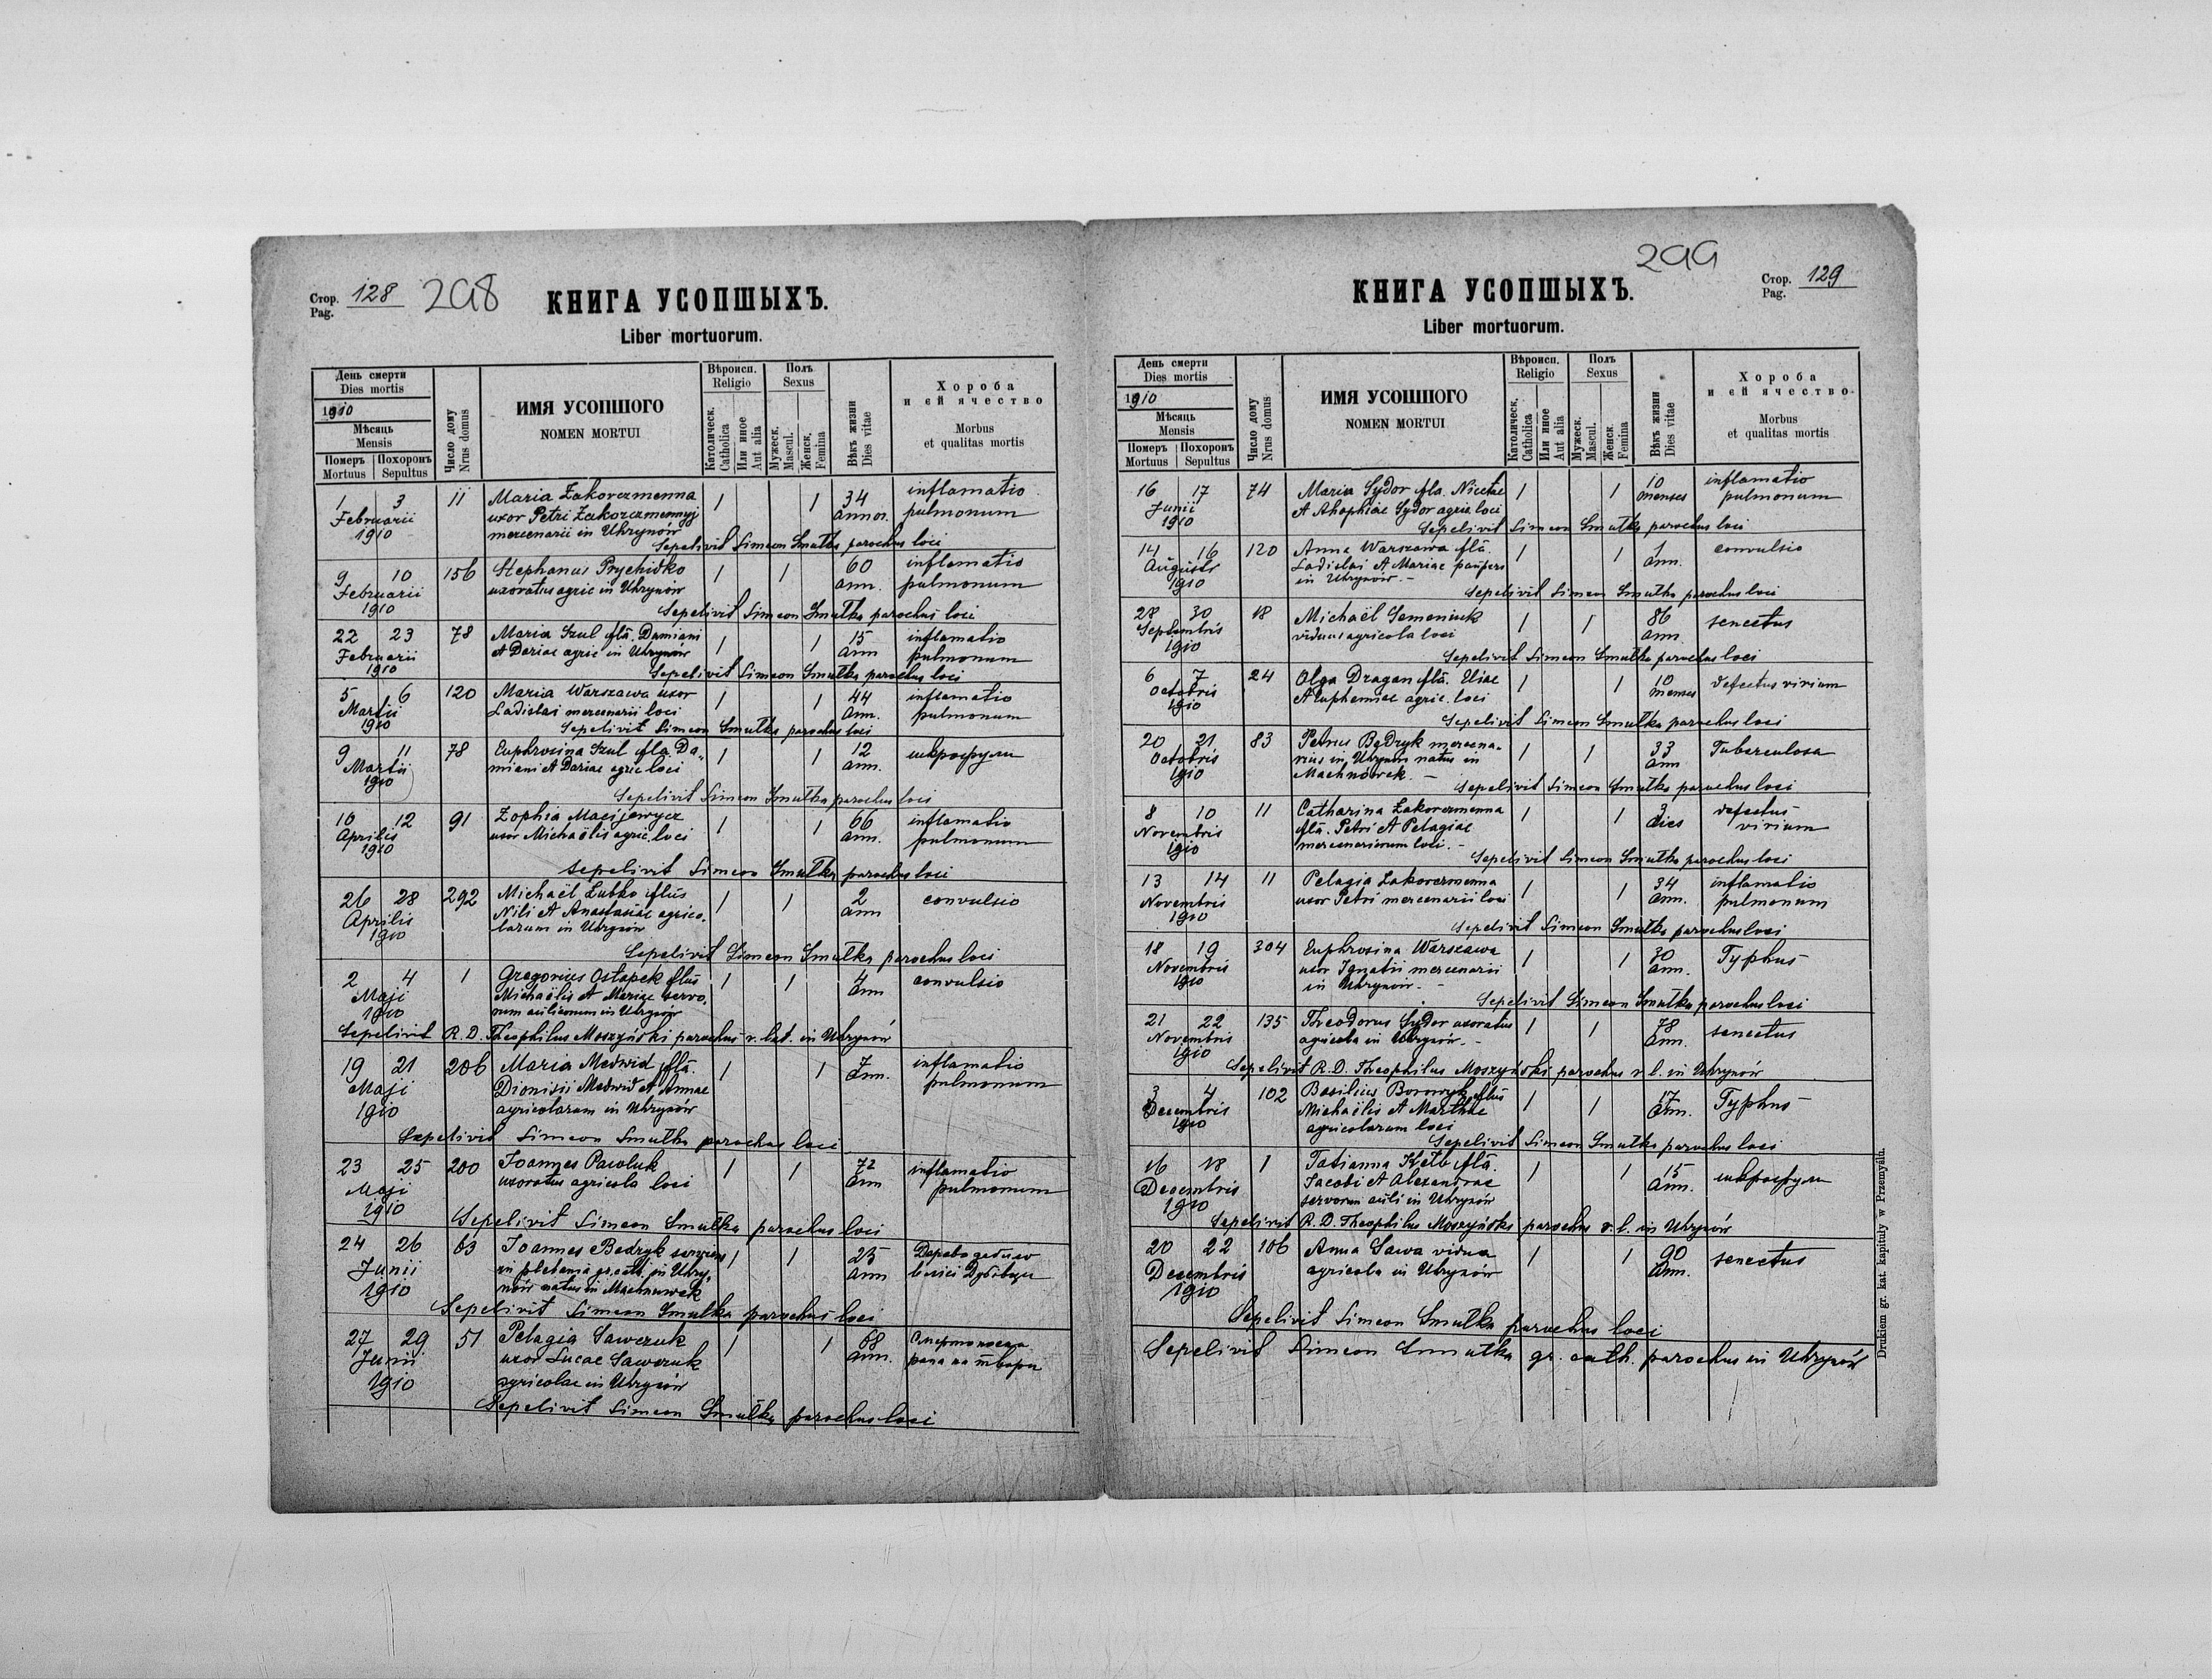 Стор. 128 298
Pag.
КНИГА УСОПШЫХЪ.
Liber mortuorum.
День смерти
Dies mortis
1910
Мѣсяць
Mensis
Померъ Похоронъ
Mortuus Sepultus
Число дому
Nrus domus
ИМЯ УСОПШОГО
NOMEN MORTUI
Вѣроисп.
Religio
Католическ.
Catholica
Или иное
Aut alia
Полъ
Sexus
Мужеск.
Mascul.
Женск.
Femina
Вѣкъ жизни
Dies vitae
Хороба
и ей ячество
Morbus
et qualitas mortis
1 3 11 Maria Zakorczmenna 1 1 34 inflamatio
Februarii uxor Petri Zakorczmennyj annor. pulmonum
1910 mercenarii in Uhrynów
Sepelivit Simeon Smulka parochus loci
9 10 156 Stephanus Prychidko 1 1 60 inflamatio
Februarii uxoratus agric in Uhrynów ann. pulmonum
1910
Sepelivit Simeon Smulka parochus loci
22 23 78 Maria Szul flā. Damiani 1 1 15 inflamatio
Februarii et Dariae agric in Uhrynów ann pulmonum
1910
Sepelivit Simeon Smulka parochus loci
5 6 120 Maria Warszawa uxor 1 1 44 inflamatio
Martii Ladislai mercenarii loci ann. pulmonum
1910
Sepelivit Simeon Smulka parochus loci
9 11 78 Euphrosina Szul fla Da„ 1 1 12 шкрофули
Martii miani et Dariae agric loci ann.
1910
Sepelivit Simeon Smulka parochus loci
10 12 91 Zophia Macijewycz 1 1 66 inflamatio
Aprilis uxor Michaëlis agric. loci ann. pulmonum
1910
Sepelivit Simeon Smulka parochus loci
26 28 292 Michaël Lubko flūs 1 1 2 convulsio
Aprilis Nili et Anastasiae agrico- ann
1910 larum in Uhrynów
Sepelivit Simeon Smulka parochus loci
2 4 1 Gregorius Ostapek flūs 1 1 4 convulsio
Maji Michaëlis et Mariae servo- ann
1910 rum aulicorum in Uhrynów
Sepelivit R. D. Theophilus Moszyński parochus r. lat. in Uhrynów
19 21 206 Maria Medwid flā. 1 1 7 inflamatio
Maji Dionisii Medwid et Annae ann. pulmonum
1910 agricolarum in Uhrynów
Sepelivit Simeon Smulka parochus loci
23 25 200 Joannes Pawluk 1 1 72 inflamatio
Maji uxoratus agricola loci ann pulmonum
1910
Sepelivit Simeon Smulka parochus loci
24 26 63 Joannes Bedryk serviens 1 1 25
Junii in plebania gr. cath. in Uhry„ ann
1910 nów natus in Machnuwek
Sepelivit Simeon Smulka parochus loci
27 29 51 Pelagia Sawczuk 1 1 68
Junii uxor Lucae Sawczuk ann.
1910 agricolae in Uhrynów
Sepelivit Simeon Smulka parochus loci
299
Стор. 129
Pag.
КНИГА УСОПШЫХЪ.
Liber mortuorum.
День смерти
Dies mortis
1910
Мѣсяць
Mensis
Померъ Похоронъ
Mortuus Sepultus
Число дому
Nrus domus
ИМЯ УСОПШОГО
NOMEN MORTUI
Вѣроисп.
Religio
Католическ.
Catholica
Или иное
Aut alia
Полъ
Sexus
Мужеск.
Mascul.
Женск.
Femina
Вѣкъ жизни
Dies vitae
Хороба
и ей ячество
Morbus
et qualitas mortis
16 17 74 Maria Sydor fla. Nicetae 1 1 10 inflamatio
Junii Sydor agric loci menses pulmonum
1910
Sepelivit Simeon Smulka parochus loci
14 16 120 Anna Warszawa flā. 1 1 1 convulsio
Augusti Ladislai et Mariae paupers ann.
1910 in Uhrynów. -
Sepelivit Simeon Smulka parochus loci
28 30 18 Michaël Semeniuk 1 1 86 senectus
Septembris viduus agricola loci ann
1910
Sepelivit Simeon Smulka parochus loci
6 7 24 Olga Dragan flā. Eliae 1 1 10 defectus virium
Octobris et Euphemiae agric. loci menses
1910
Sepelivit Simeon Smulka parochus loci
20 21 83 Petrus Bedryk mercena- 1 1 33 Tuberculosa
Octobris rius in Uhrynów natus in ann
1910 Machnówek. -
Sepelivit Simeon Smulka parochus loci
8 10 11 Catharina Zakorczmenna 1 1 3 defectus
Novembris flā. Petri et Pelagiae dies virium
1910 mercenariorum loci. -
Sepelivit Simeon Smulka parochus loci
13 14 11 Pelagia Zakorczmenna 1 1 34 inflamatio
Novembris uxor Petri mercenarii loci ann. pulmonum
1910
Sepelivit Simeon Smulka parochus loci
18 19 304 Euphrosina Warszawa 1 1 30 Typhus
Novembris uxor Ignatii mercenarii ann.
1910 in Uhrynów. -
Sepelivit Simeon Smulka parochus loci
21 22 135 Theodorus Sydor uxoratus 1 1 78 senectus
Novembris agricola in Uhrynów. - ann.
1910
Sepelivit R. D. Theophilus Moszyński parochus r. l. in Uhrynów
3 4 102 Basilius Borowyk flūs 1 1 17 Typhus
Decembris Michaëlis et Marthae ann.
1910 agricolarum loci
Sepelivit Simeon Smulka parochus loci
16 18 1 Tatianna flā. 1 1 15 шкрофули
Decembris Jacobi et Alexandrae ann.
1910 servorum auli in Uhrynów
Sepelivit R. D. Theophilus Moszyński parochus r. l. in Uhrynów
20 22 106 Anna Sawa vidua 1 1 90 senectus
Decembris agricola in Uhrynów ann.
1910
Sepelivit Simeon Smulka parochus loci
Sepelivit Simeon Smulka gr. cath. parochus in Uhrynów
Drukiem gr. kat. kapituły w Przemyślu.